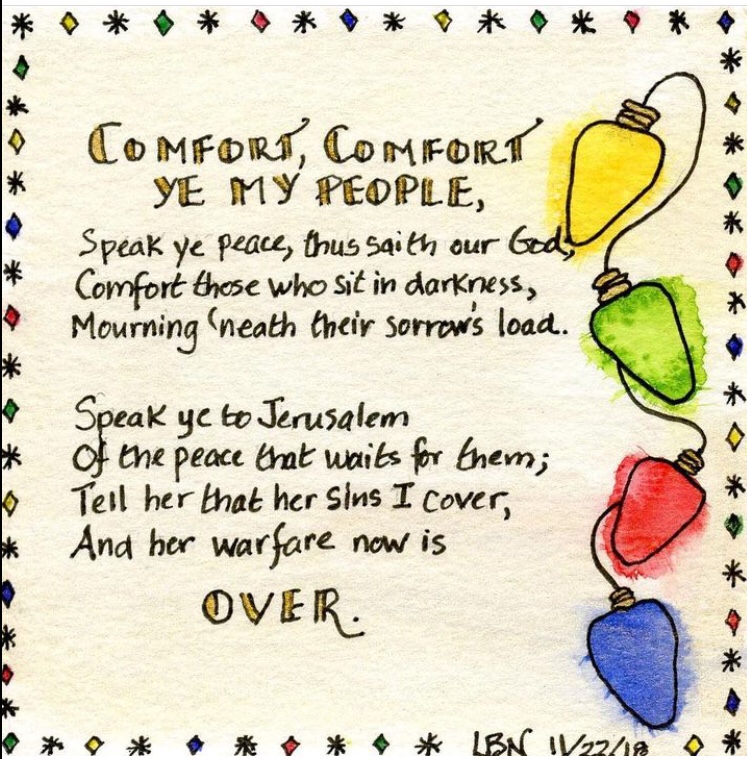 COMFORT, COMFORT
YE MY PEOPLE,
Speak ye peace, thus saith our God,
Comfort those who sit in darkness,
Mourning 'neath their sorrow's load.
Speak ye to Jerusalem
Of the peace that waits for them;
Tell her that her sins I cover,
And her warfare now is
OVER.
LBN 11/22/18